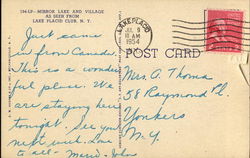 194-LP-MIRROR LAKE AND VILLAGE
AS SEEN FROM
LAKE PLACID CLUB, N. Y.
LAKE PLACID
JUL 9
11 AM
1954
POST CARD
Just came
from Canada.
This is a wonder
ful place. We
are staying here
tonight. See you
next week. Love
to all -
Mrs. A. Thomas
58 Raymond Pl.
Yonkers
N.Y.